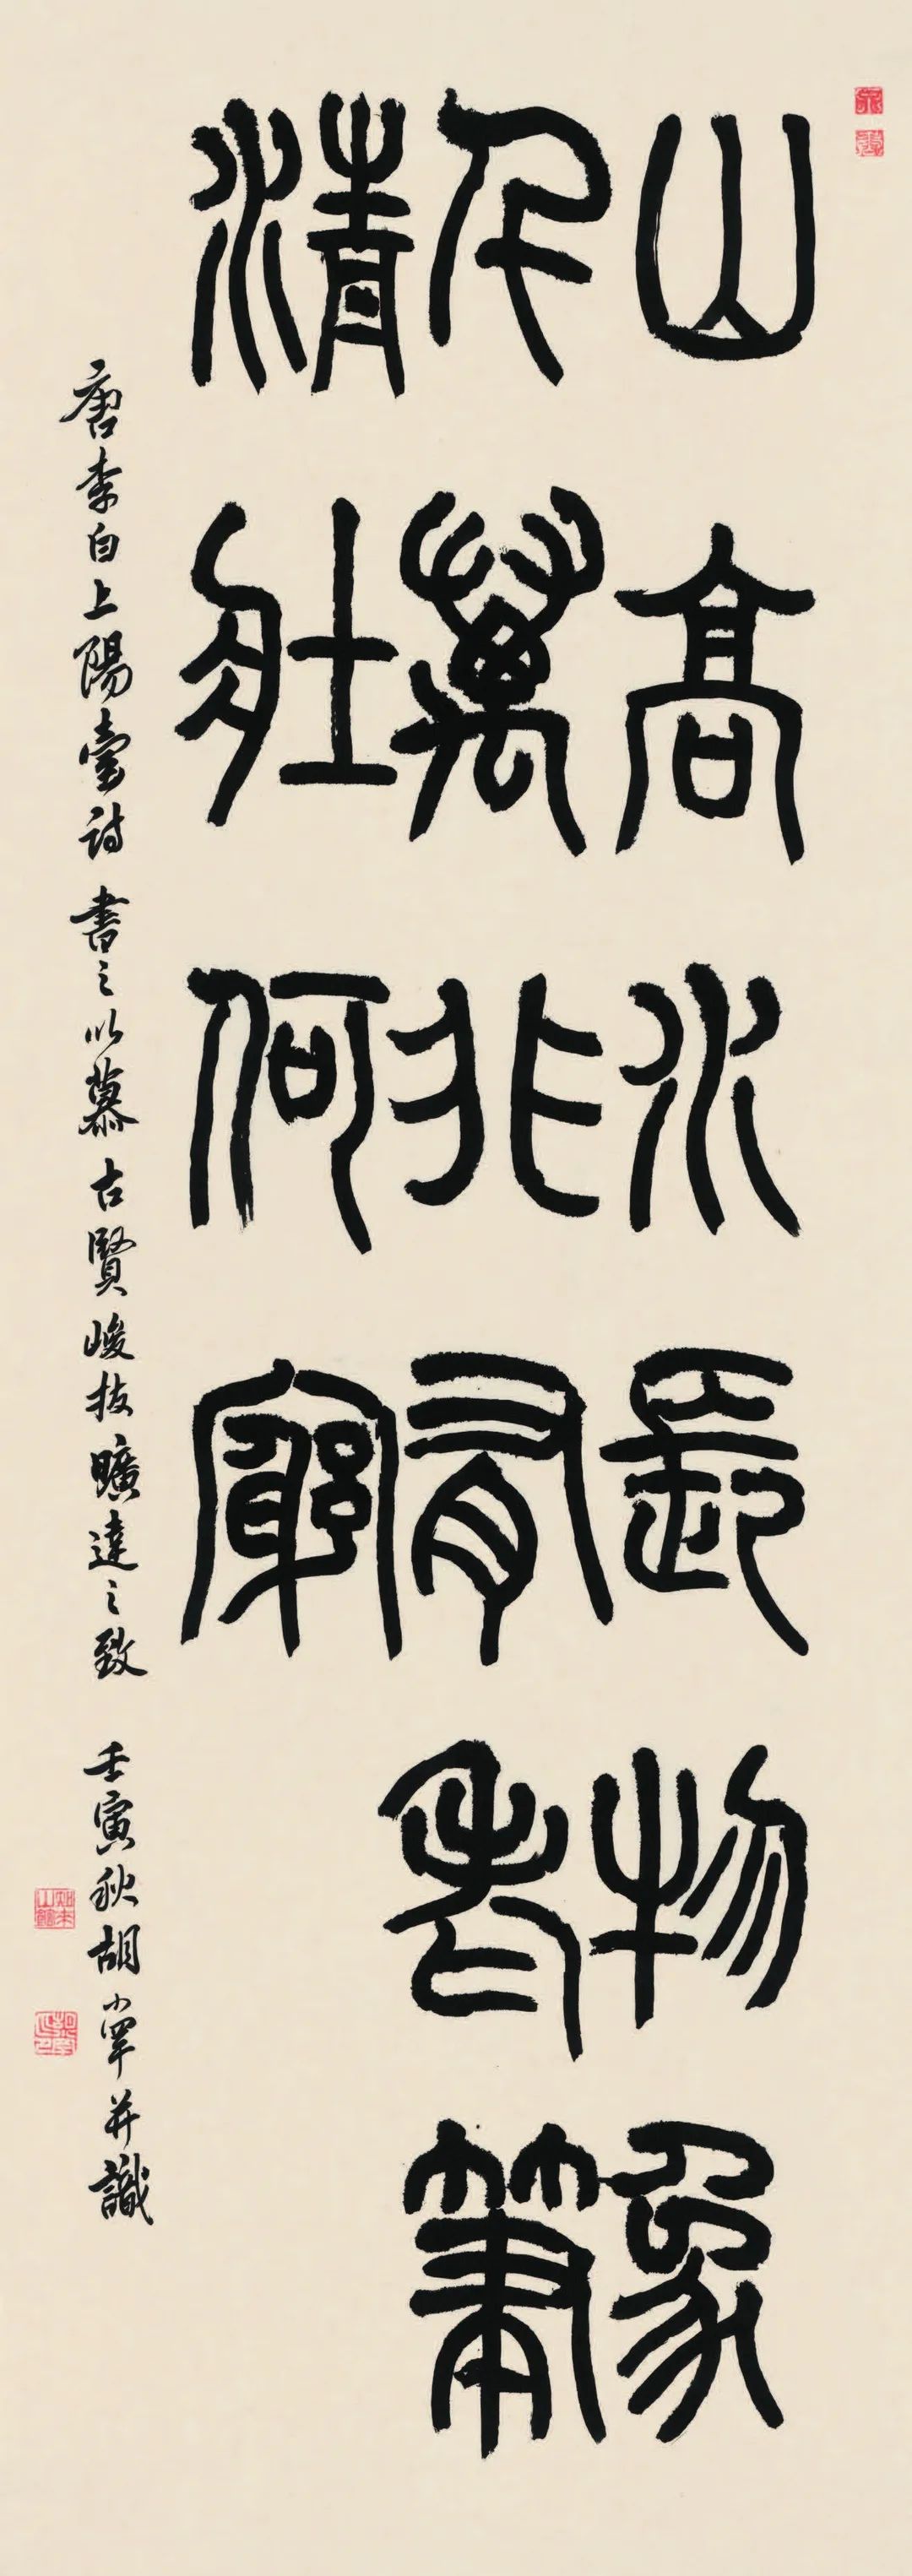 山高水長物象
千萬非有老筆
清壯何窮
唐李白上陽臺詩 書之以慕古賢峻拔曠達之致 壬寅秋胡小罕并識